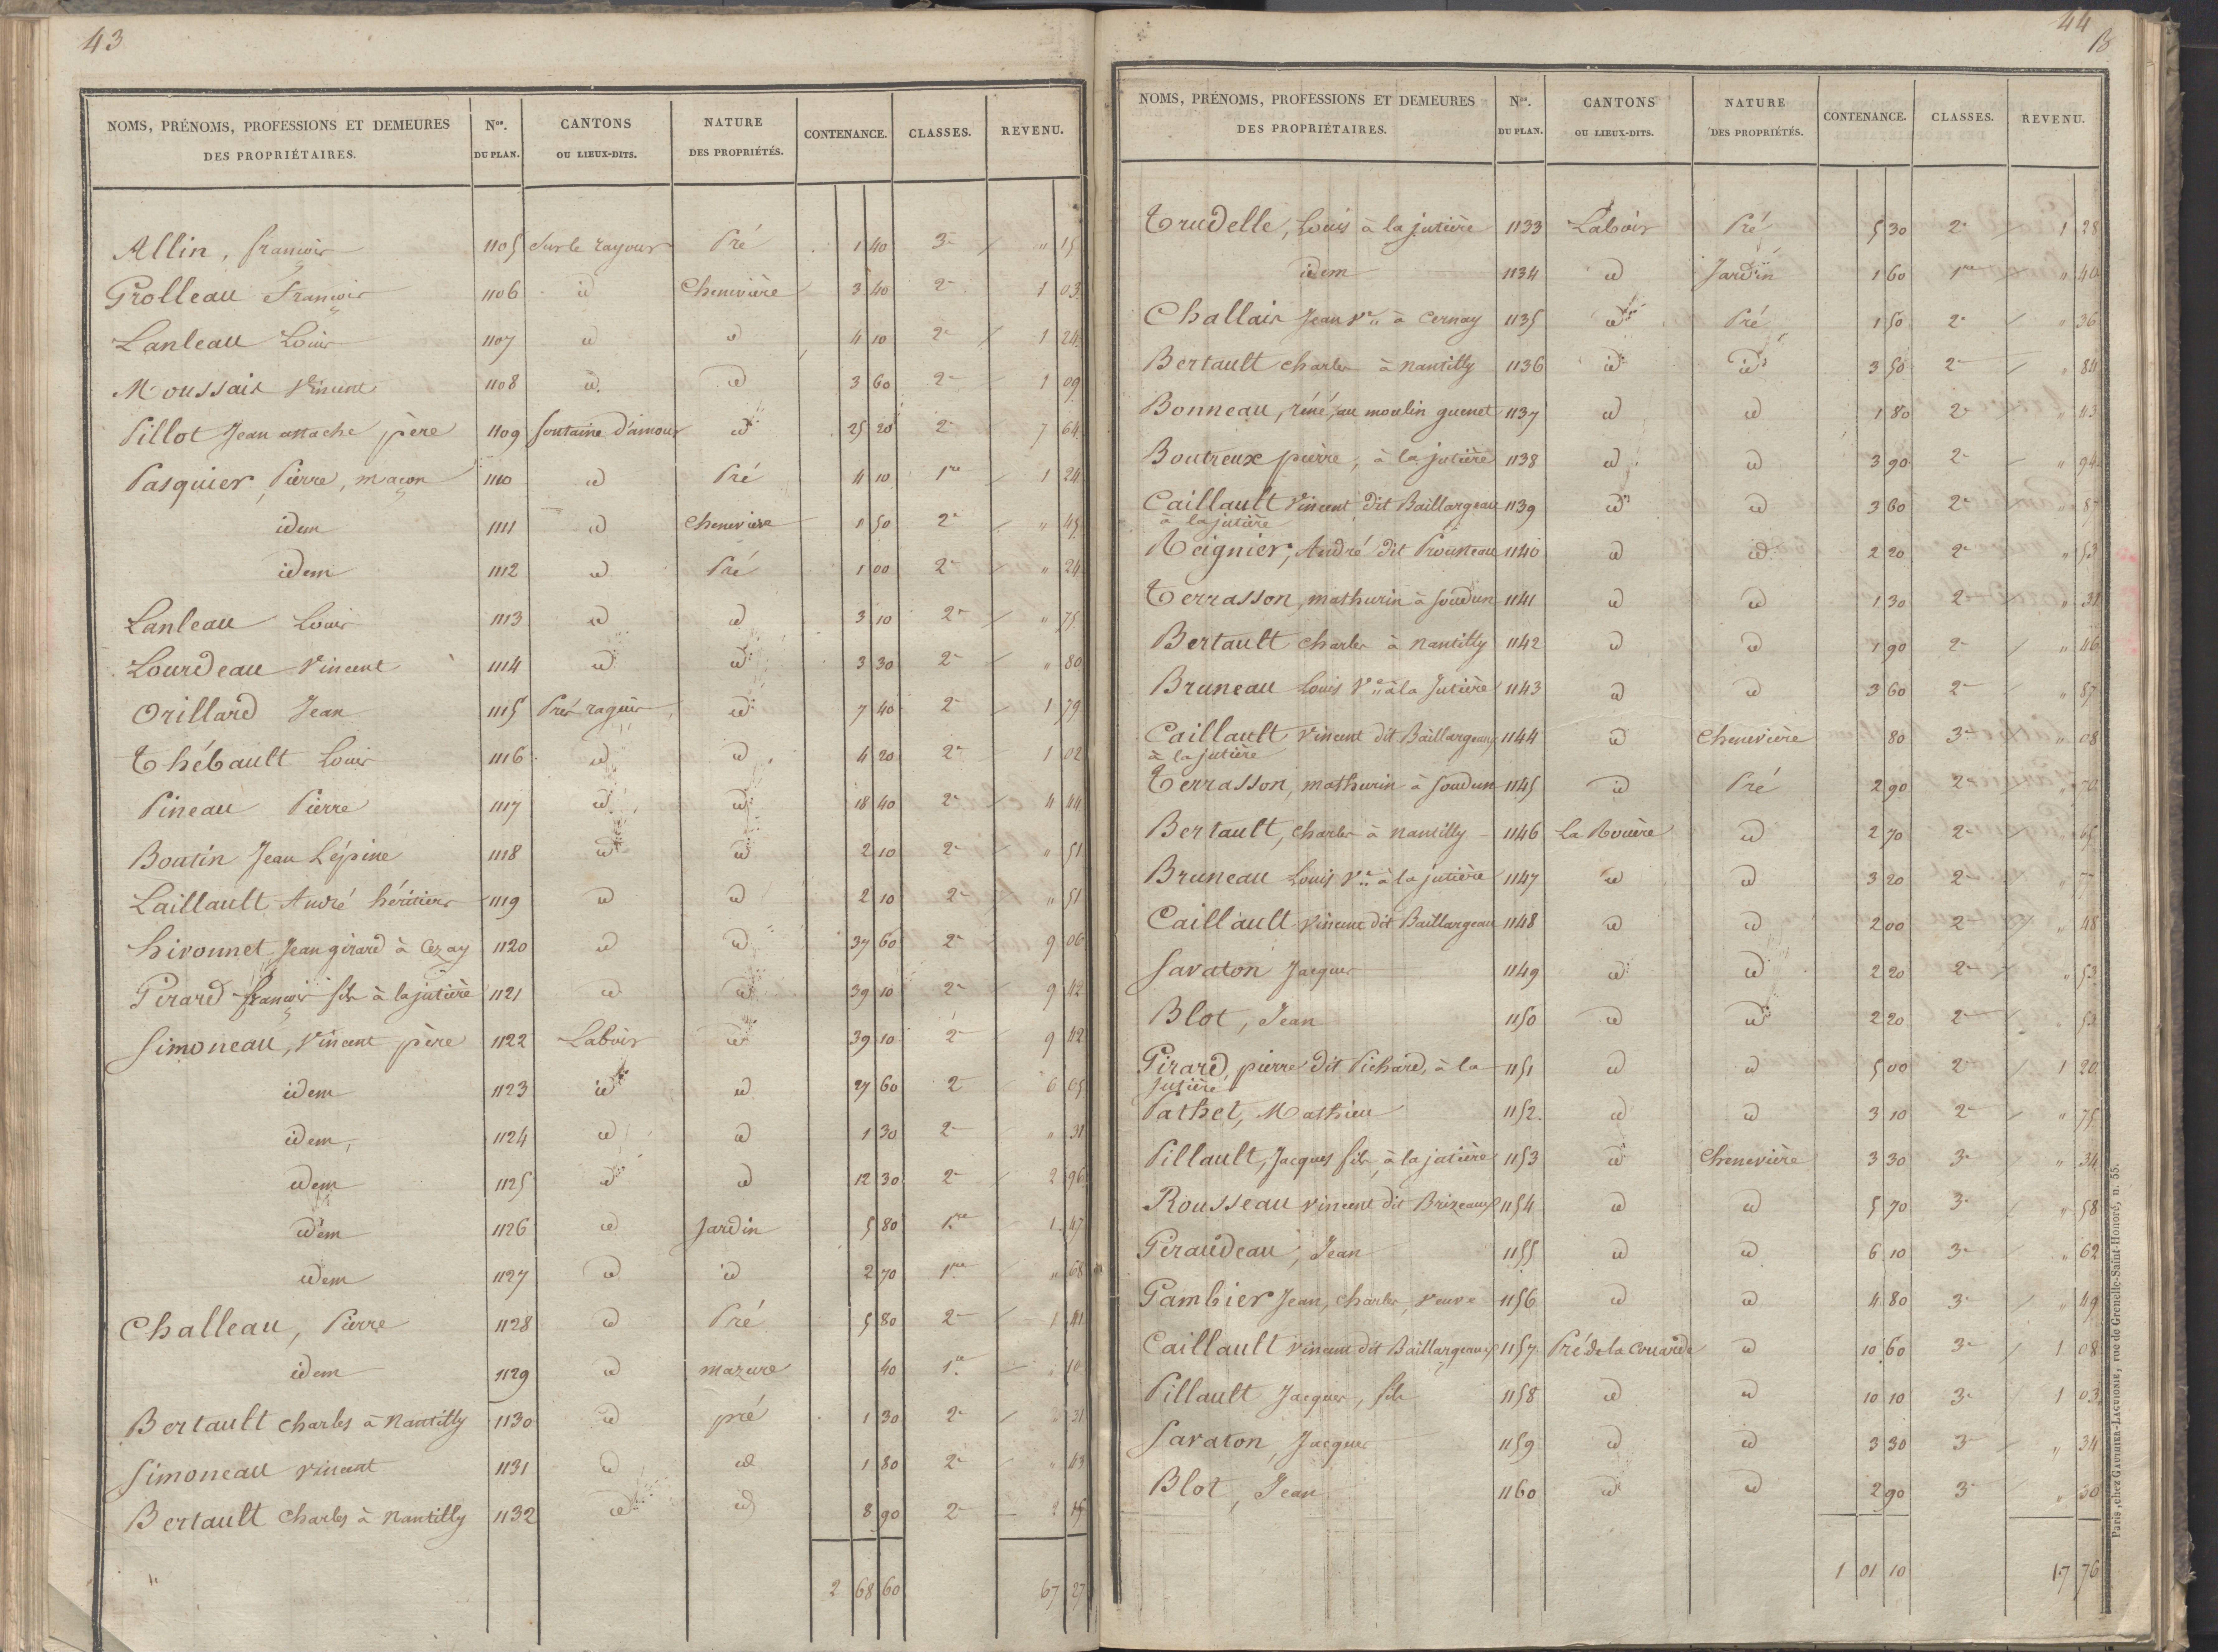 43
NOMS, PRÉNOMS, PROFESSIONS ET DEMEURES DES PROPRIÉTAIRES. Nos. DU PLAN. CANTONS OU LIEUX-DITS. NATURE DES PROPRIÉTÉS. CONTENANCE. CLASSES. REVENU.
Allin, françois 1105 Sur le rayour Pré 1 40 3e " 15
Grolleau François 1106 id Chenevière 3 40 2e 1 03
Lanleau Louis 1107 id id 4 10 2e 1 24
Moussais Vincent 1108 id id 3 60 2e 1 09
Pillot Jean attache père 1109 fontaine d'amour id 25 20 2e 7 64
Pasquier, Pierre, maçon 1110 id Pré 4 10 1re 1 24
idem 1111 id chenevière 1 50 2e " 45
idem 1112 id Pré 1 00 2e " 24
Lanleau Louis 1113 id id 3 10 2e " 75
Lourdeau Vincent 1114 id id 3 30 2e " 80
Orillard Jean 1115 Prés raguis id 7 40 2e 1 79
Thébault Louis 1116 id id 4 20 2e 1 02
Pineau Pierre 1117 id id 18 40 2e 4 44
Boutin Jean Lépine 1118 id id 2 10 2e " 51
Caillault, André héritiers 1119 id id 2 10 2e " 51
hivonnet Jean girard à Cezay 1120 id id 37 60 2e 9 06
Girard françois fils à la jutière 1121 id id 39 10 2e 9 42
Simoneau, Vincent père 1122 Labois id 39 10 2e 9 42
idem 1123 id id 27 60 2e 6 65
idem, 1124 id id 1 30 2e " 31
idem 1125 id id 12 30 2e 2 96
idem 1126 id Jardin 5 80 1re 1 47
idem 1127 id id 2 70 1re " 68
Challeau, Pierre 1128 id Pré 5 80 2e 1 41
idem 1129 id mazure 40 1re " 10
Bertault charles à Nantilly 1130 id pré 1 30 2e " 31
Simoneau vincent 1131 id id 1 80 2e " 43
Bertault Charles à Nantilly 1132 id id 8 90 2e 2 15
2 68 60 67 27
44
NOMS, PRÉNOMS, PROFESSIONS ET DEMEURES DES PROPRIÉTAIRES. Nos. DU PLAN. CANTONS OU LIEUX-DITS. NATURE DES PROPRIÉTÉS. CONTENANCE. CLASSES. REVENU.
Trudelle, Louis à la jutière 1133 Labois Pré 5 30 2e 1 28
idem 1134 id Jardin 1 60 1re " 40
Challais Jean Ve à Cernay 1135 id Pré 1 50 2e " 36
Bertault charles à nantilly 1136 id id 3 50 2e " 84
Bonneau, réné, au moulin guenet 1137 id id 1 80 2e " 43
Boutreux pierre, à la jutière 1138 id id 3 90 2e " 94
Caillault Vincent dit Baillargeau 1139 id id 3 60 2e " 87
à la jutière
Meignier, André dit Prousteau 1140 id id 2 20 2e " 53
Terrasson, mathurin à Soudun 1141 id id 1 30 2e " 31
Bertault Charles à Nantilly 1142 id id 1 90 2e " 46
Bruneau Louis Ve à la Jutière 1143 id id 3 60 2e " 87
Caillault Vincent dit Baillargeau 1144 id Chenevière 80 3e " 08
à la jutière
Terrasson, mathurin à Soudun 1145 id Pré 2 90 2e " 70
Bertault, Charles à nantilly 1146 La Rouère id 2 70 2e " 65
Bruneau Louis Ve à la jutière 1147 id id 3 20 2e " 77
Caillault vincent dit Baillargeau 1148 id id 2 00 2e " 48
Savaton Jacques 1149 id id 2 20 2e " 53
Blot, Jean 1150 id id 2 20 2e " 53
Girard, pierre dit Pichard, à la 1151 id id 5 00 2e 1 20
jutière
Pathet, Mathieu 1152 id id 3 10 2e " 75
Pillault, Jacques fils à la jutière 1153 id Chenevière 3 30 3e " 34
Rousseau vincent dit Brizeaux 1154 id id 5 70 3e " 58
Geraudeau, Jean 1155 id id 6 10 3e " 62
Gambier Jean, charles, veuve 1156 id id 4 80 3e " 49
Caillault vincent dit Baillargeau 1157 Pré de la Couarde id 10 60 3e 1 08
Pillault Jacques, fils 1158 id id 10 10 3e 1 03
Savaton, Jacques 1159 id id 3 30 3e " 34
Blot, Jean 1160 id id 2 90 3e " 30
1 01 10 17 76
Paris, chez GAUTHIER-LAGUIONIE, rue de Grenelle-Saint-Honoré, n. 55.